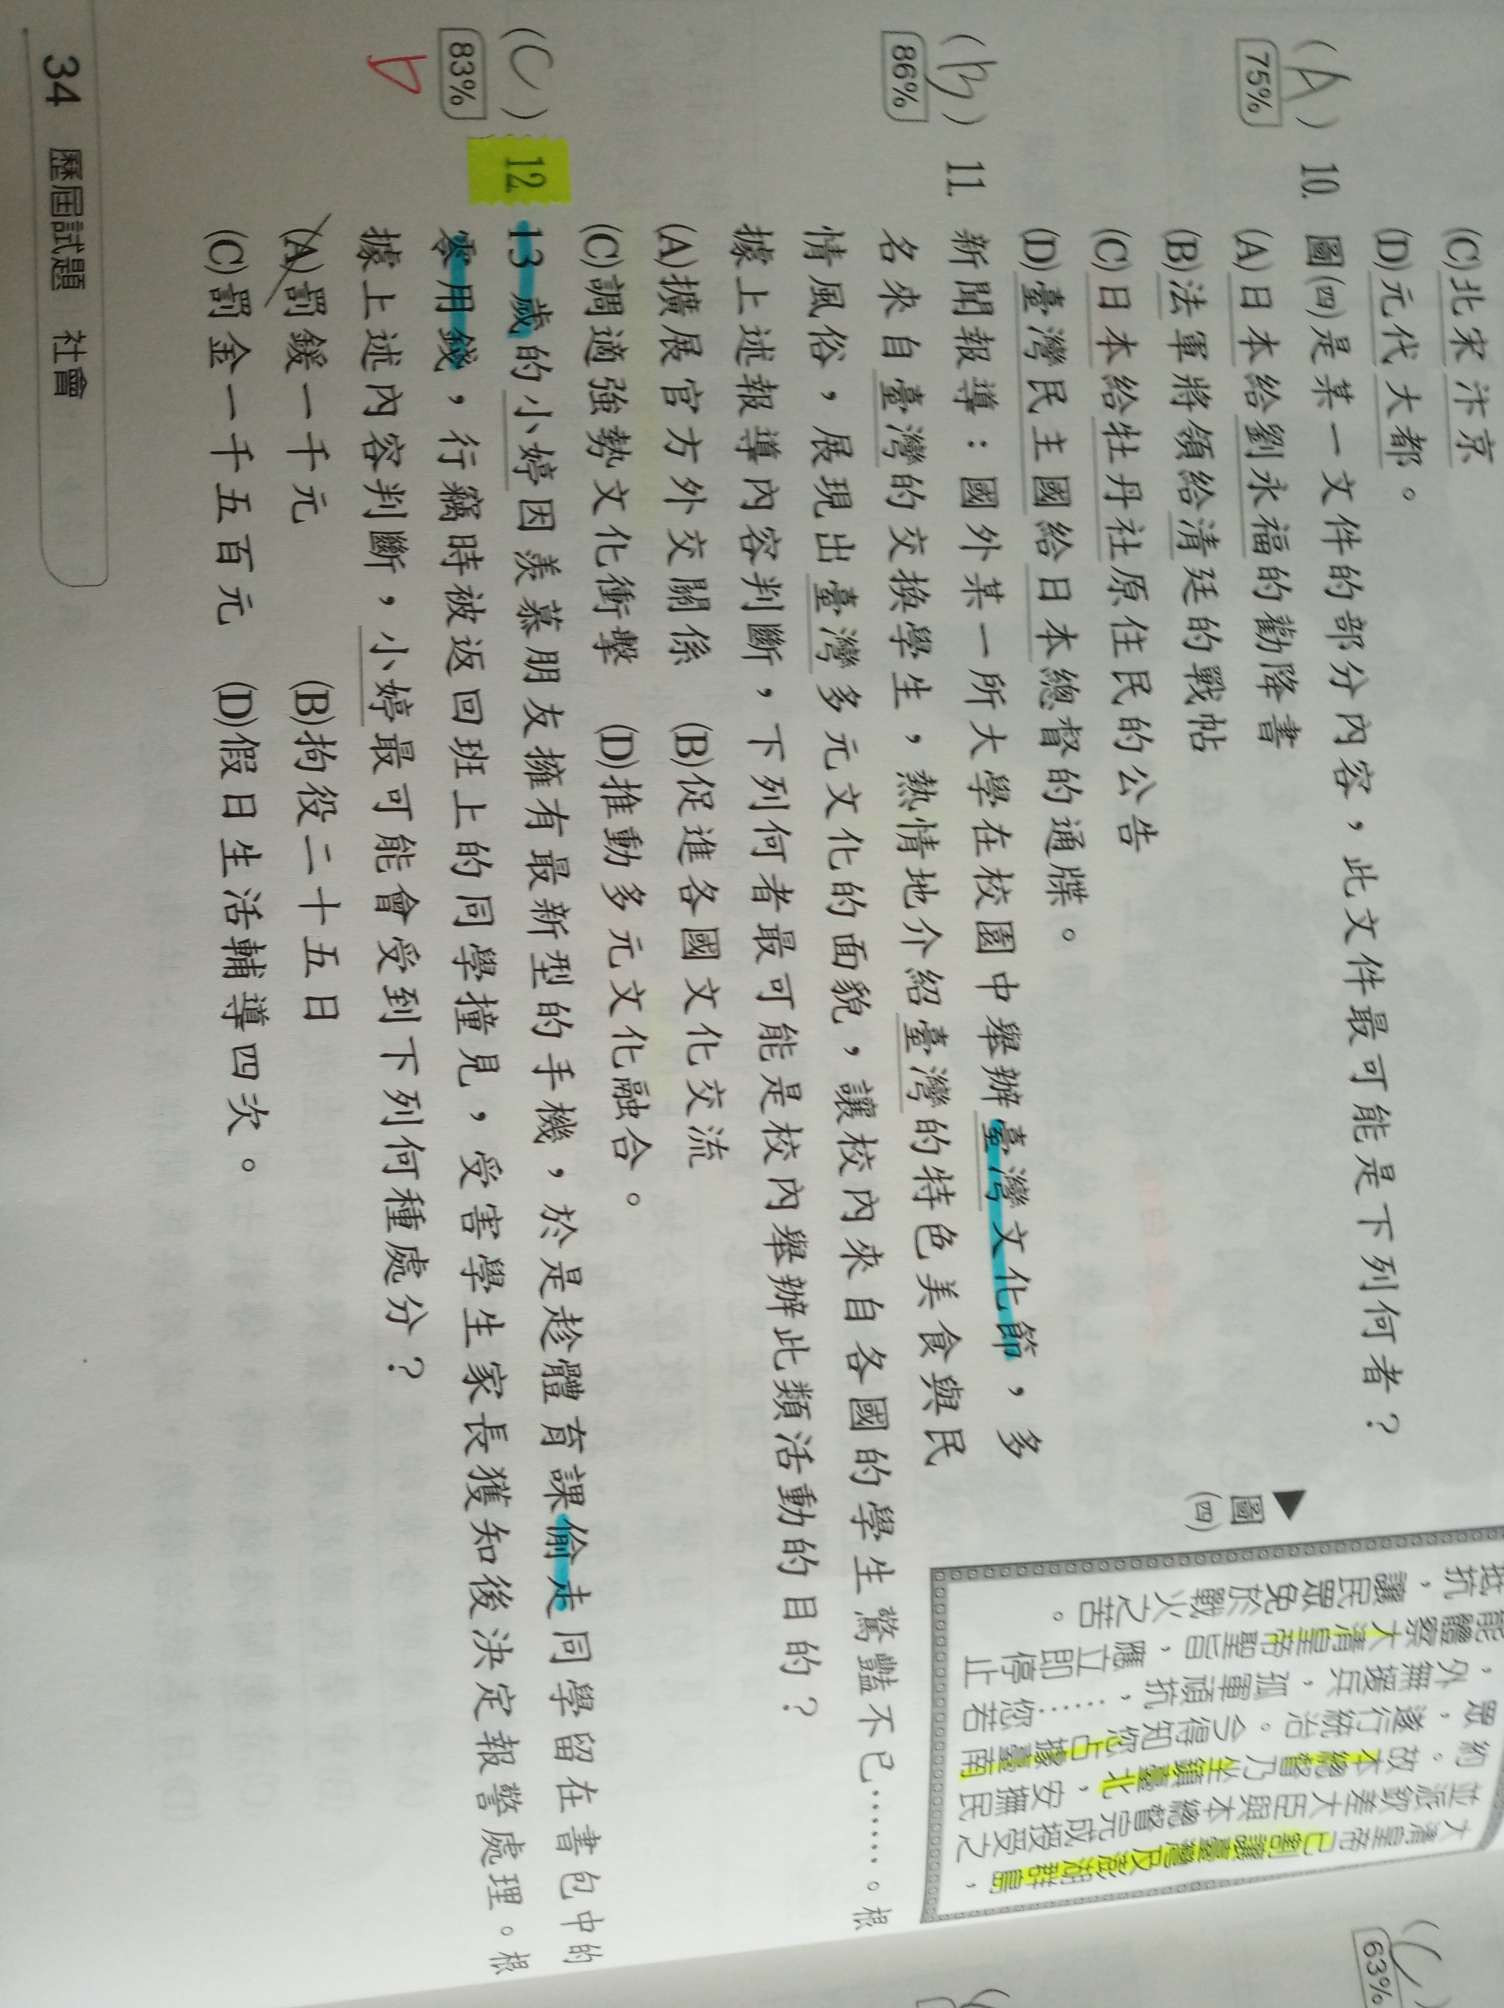 (C)北宋汴京
(D)元代大都。
(A) 10. 圖(四)是某一文件的部分內容，此文件最可能是下列何者？
75%
(A)日本給劉永福的勸降書
(B)法軍將領給清廷的戰帖
(C)日本給牡丹社原住民的公告
(D)臺灣民主國給日本總督的通牒。
▲圖(四)
大清皇帝已割讓臺灣及澎湖群島，
並派欽差大臣與本總督完成授受之
約。故本總督乃坐鎮臺北，安撫民
眾，遂行統治。今得知您占據臺南
，外無援兵，孤軍頑抗，……您若
能體察大清皇帝聖旨，應立即停止
抵抗，讓民眾免於戰火之苦。
(B) 11. 新聞報導：國外某一所大學在校園中舉辦臺灣文化節，多
86%
名來自臺灣的交換學生，熱情地介紹臺灣的特色美食與民
情風俗，展現出臺灣多元文化的面貌，讓校內來自各國的學生驚豔不已……。根
據上述報導內容判斷，下列何者最可能是校內舉辦此類活動的目的？
(A)擴展官方外交關係 (B)促進各國文化交流
(C)調適強勢文化衝擊 (D)推動多元文化融合。
(C) 12. 13歲的小婷因羨慕朋友擁有最新型的手機，於是趁體育課偷走同學留在書包中的
83%
D
零用錢，行竊時被返回班上的同學撞見，受害學生家長獲知後決定報警處理。根
據上述內容判斷，小婷最可能會受到下列何種處分？
(A)罰鍰一千元 (B)拘役二十五日
(C)罰金一千五百元 (D)假日生活輔導四次。
34 歷屆試題 社會
63%